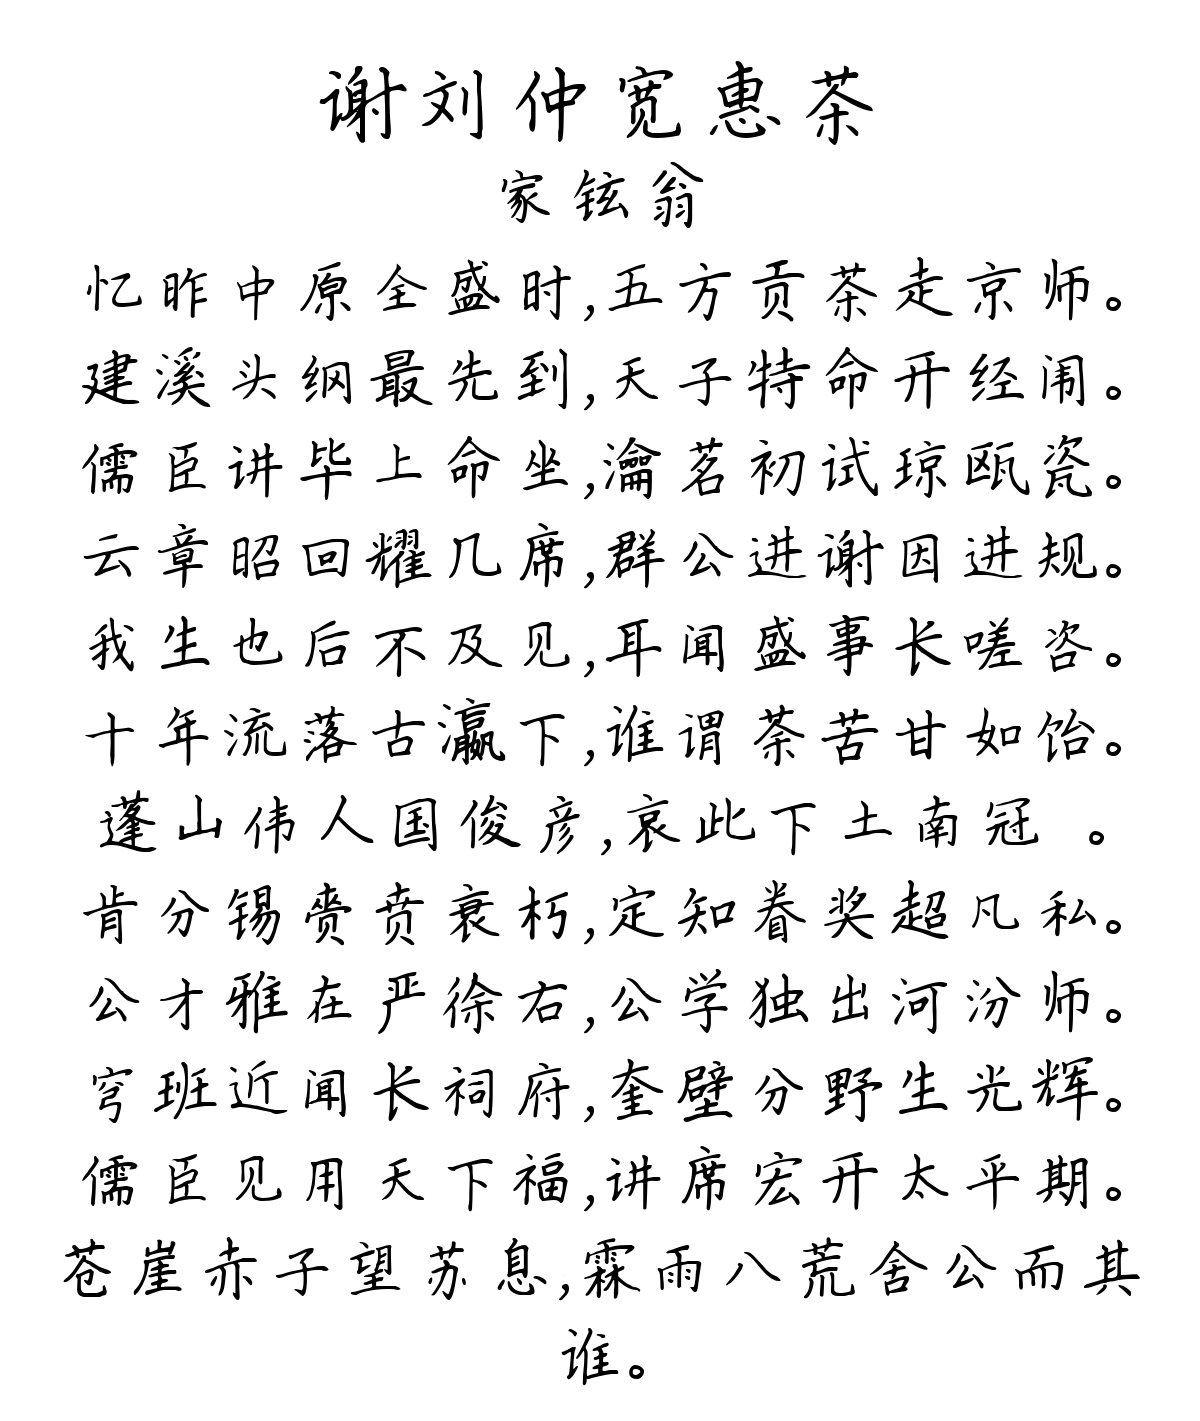 谢刘仲宽惠茶
家铉翁
忆昨中原全盛时,五方贡茶走京师。
建溪头纲最先到,天子特命开经闱。
儒臣讲毕上命坐,瀹茗初试琼瓯瓷。
云章昭回耀几席,群公进谢因进规。
我生也后不及见,耳闻盛事长嗟咨。
十年流落古瀛下,谁谓荼苦甘如饴。
蓬山伟人国俊彦,哀此下土南冠 。
肯分锡赉贲衰朽,定知眷奖超凡私。
公才雅在严徐右,公学独出河汾师。
穹班近闻长祠府,奎壁分野生光辉。
儒臣见用天下福,讲席宏开太平期。
苍崖赤子望苏息,霖雨八荒舍公而其
谁。